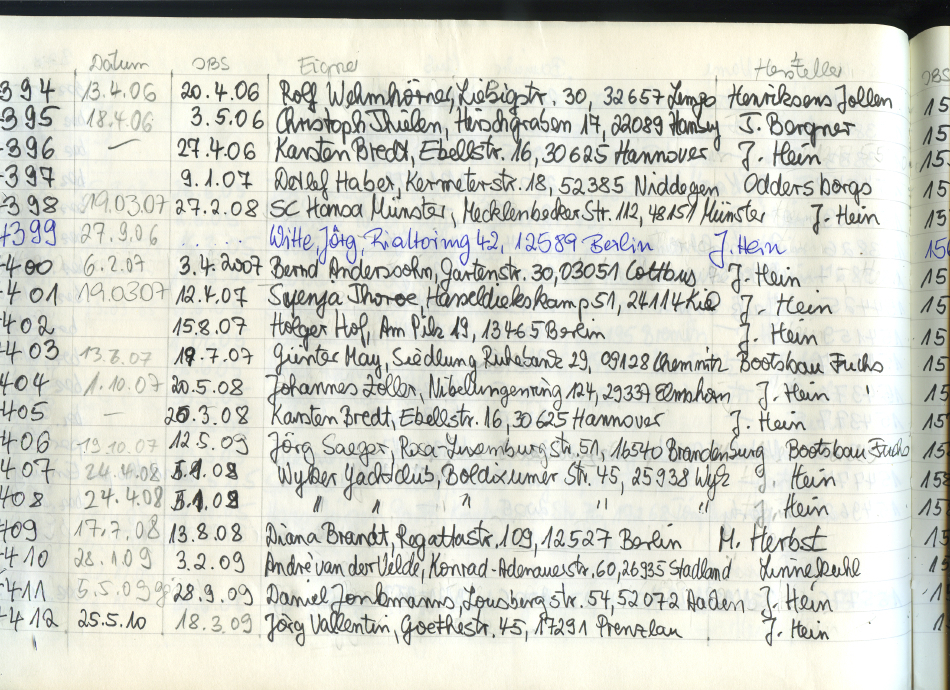 Datum DBS Eigner Hersteller DBS
394 13.4.06 20.4.06 Rolf Wehmhörner, Liebigstr. 30, 32657 Lemgo Henriksens Jollen 15
395 18.4.06 3.5.06 Christoph Thielen, Hirschgraben 17, 22089 Hamburg J. Bergner 15
396 — 27.4.06 Karsten Bredt, Ebellstr. 16, 30625 Hannover J. Hein 15
397 9.1.07 Detlef Haber, Kermeterstr. 18, 52385 Niddegen Odders borgs 15
398 19.03.07 27.2.08 SC Hansa Münster, Mecklenbecker Str. 112, 48151 Münster J. Hein 15
399 27.9.06 Witte, Jörg, Rialtoring 42, 12589 Berlin J. Hein 150
400 6.2.07 3.4.2007 Bernd Anderssohn, Gartenstr. 30, 03051 Cottbus J. Hein 15
401 19.0307 12.4.07 Svenja Thoroe, Hasseldiekskamp 51, 24114 Kiel J. Hein 15
402 15.8.07 Holger Hof, Am Pilz 19, 13465 Berlin J. Hein 15
403 13.7.07 19.7.07 Günter May, Siedlung Ruhebank 29, 09128 Chemnitz Bootsbau Fuchs 15
404 1.10.07 20.5.08 Johannes Zoller, Nibelungenring 124, 25337 Elmshorn J. Hein 15
405 — 26.3.08 Karsten Bredt, Ebellstr. 16, 30625 Hannover J. Hein 15
406 19.10.07 12.5.09 Jörg Saeger, Rosa-Luxemburg str. 51, 16540 Brandenburg Bootsbau Fuchs 15
407 24.4.08 5.9.08 Wyker Yachtclub, Boldixumer Str. 45, 25938 Wyk J. Hein 15
408 24.4.08 5.9.08 " " " " " J. Hein 15
409 17.7.08 13.8.08 Diana Brandt, Regattastr. 109, 12527 Berlin M. Herbst 15
410 28.1.09 3.2.09 André van der Velde, Konrad-Adenauerstr. 60, 26935 Stadland 15
411 5.5.09 28.9.09 Daniel Jonkmanns, Lousberg Str. 54, 52072 Aachen J. Hein 1
412 25.5.10 18.3.09 Jörg Vallentin, Goethestr. 45, 17291 Prenzlau J. Hein 1